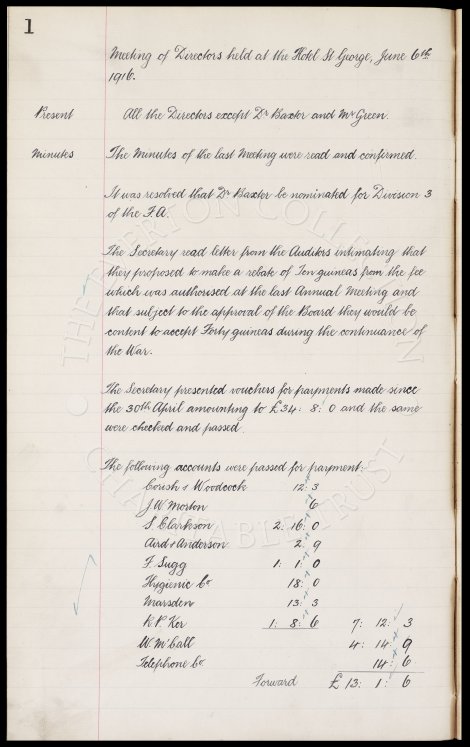 1
Meeting of Directors held at the Hotel St George, June 6th
1916.
Present All the Directors except Dr Baxter and Mr Green.
Minutes The Minutes of the last Meeting were read and confirmed.
It was resolved that Dr Baxter be nominated for Division 3
of the F.A.
The Secretary read letter from the Auditors intimating that
they proposed to make a rebate of Ten guineas from the fee
which was authorised at the last Annual Meeting and
that subject to the approval of the Board they would be
content to accept Forty guineas during the continuance of
the War.
The Secretary presented vouchers for payments made since
the 30th April amounting to £34: 8: 0 and the same
were checked and passed.
The following accounts were passed for payment:
Corish & Woodcock 12: 3
J.W. Morton 6
S. Clarkson 2: 16: 0
Aird & Anderson 2: 9
F. Sugg 1: 1: 0
Hygienic Co 18: 0
Marsden 13: 3
1: 8: 6 7: 12: 3
W. McCall 4: 14: 9
Telephone Co. 14: 6
Forward £13: 1: 6
THE EVERTON COLLECTION
CHARITABLE TRUST